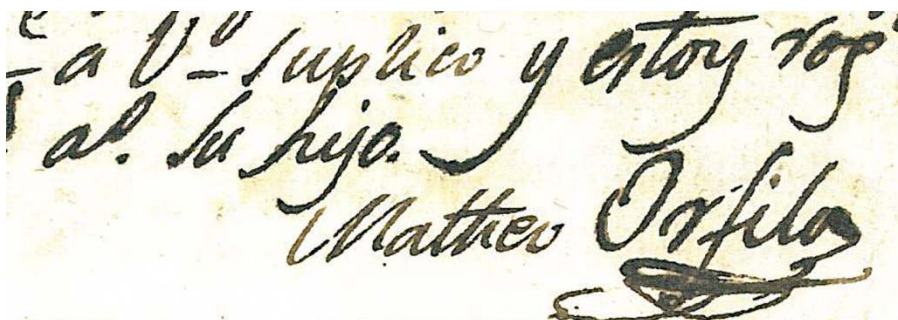 a V suplico y estoy rog
a V. su hijo.
Matheo Orfila